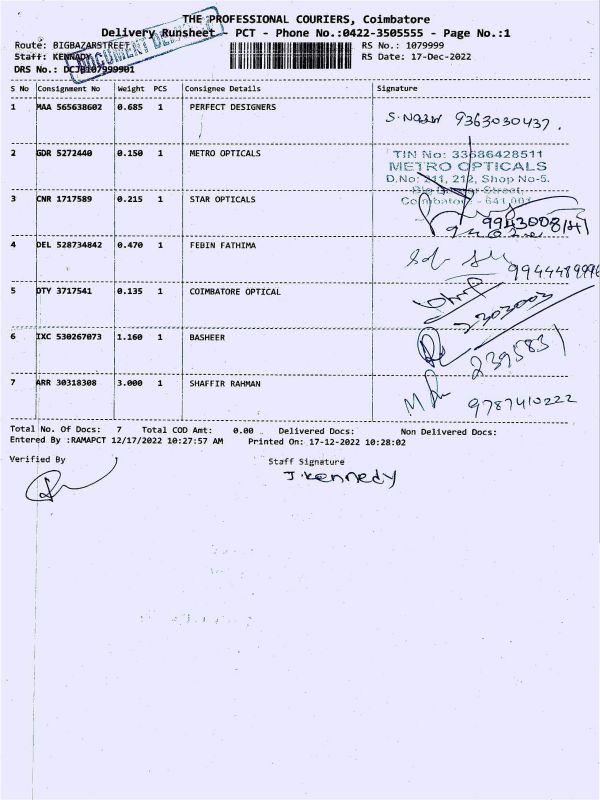 THE PROFESSIONAL COURIERS, Coimbatore
Delivery Runsheet - PCT - Phone No.:0422-3505555 - Page No.:1
Route: BIGBAZARSTREET
RS No.: 1079999
Staff: KENNADY
RS Date: 17-Dec-2022
DRS No.: DCJB107999901
DOCUMENT
S No Consignment No Weight PCS Consignee Details Signature
1 MAA 565638602 0.685 1 PERFECT DESIGNERS
9363030437.
2 GDR 5272440 0.150 1 METRO OPTICALS
TIN No: 33686428511
METRO OPTICALS
D.No: 211, 212, Shop No-5.
Street,
Coimbatore - 641 001
3 CNR 1717589 0.215 1 STAR OPTICALS
4 DEL 528734842 0.470 1 FEBIN FATHIMA
5 DTY 3717541 0.135 1 COIMBATORE OPTICAL
2303003
6 IXC 530267073 1.160 1 BASHEER
2395831
7 ARR 30318308 3.000 1 SHAFFIR RAHMAN
9787410222
Total No. Of Docs: 7 Total COD Amt: 0.00 Delivered Docs: Non Delivered Docs:
Entered By :RAMAPCT 12/17/2022 10:27:57 AM Printed On: 17-12-2022 10:28:02
Verified By Staff Signature
J. Kennedy